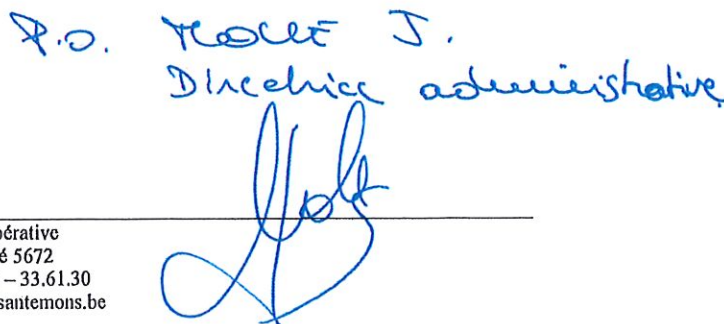 P.O. MOLLE J.
Directrice administrative
pérative
é 5672
– 33.61.30
santemons.be